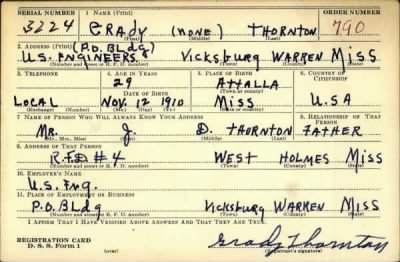 SERIAL NUMBER 1. NAME (Print) ORDER NUMBER
3224 GRADY (NONE) THORNTON 790
(First) (Middle) (Last)
2. ADDRESS (Print) (P.O. BLDG)
U.S. ENGINEERS VICKSBURG WARREN MISS
(Number and street or R. F. D. number) (Town) (County) (State)
3. TELEPHONE 4. AGE IN YEARS 5. PLACE OF BIRTH 6. COUNTRY OF CITIZENSHIP
29 ATTALLA
DATE OF BIRTH (Town or county)
LOCAL NOV. 12 1910 MISS U.S.A
(Exchange) (Number) (Mo.) (Day) (Yr.) (State or country)
7. NAME OF PERSON WHO WILL ALWAYS KNOW YOUR ADDRESS 8. RELATIONSHIP OF THAT PERSON
MR. J. D. THORNTON FATHER
(Mr., Mrs., Miss) (First) (Middle) (Last)
9. ADDRESS OF THAT PERSON
R.F.D #4 WEST HOLMES MISS
(Number and street or R. F. D. number) (Town) (County) (State)
10. EMPLOYER'S NAME
U.S. ENG.
11. PLACE OF EMPLOYMENT OR BUSINESS
P.O. BLDG VICKSBURG WARREN MISS
(Number and street or R. F. D. number) (Town) (County) (State)
I AFFIRM THAT I HAVE VERIFIED ABOVE ANSWERS AND THAT THEY ARE TRUE.
REGISTRATION CARD
D. S. S. Form 1 (over) Grady Thornton
(Registrant's signature)